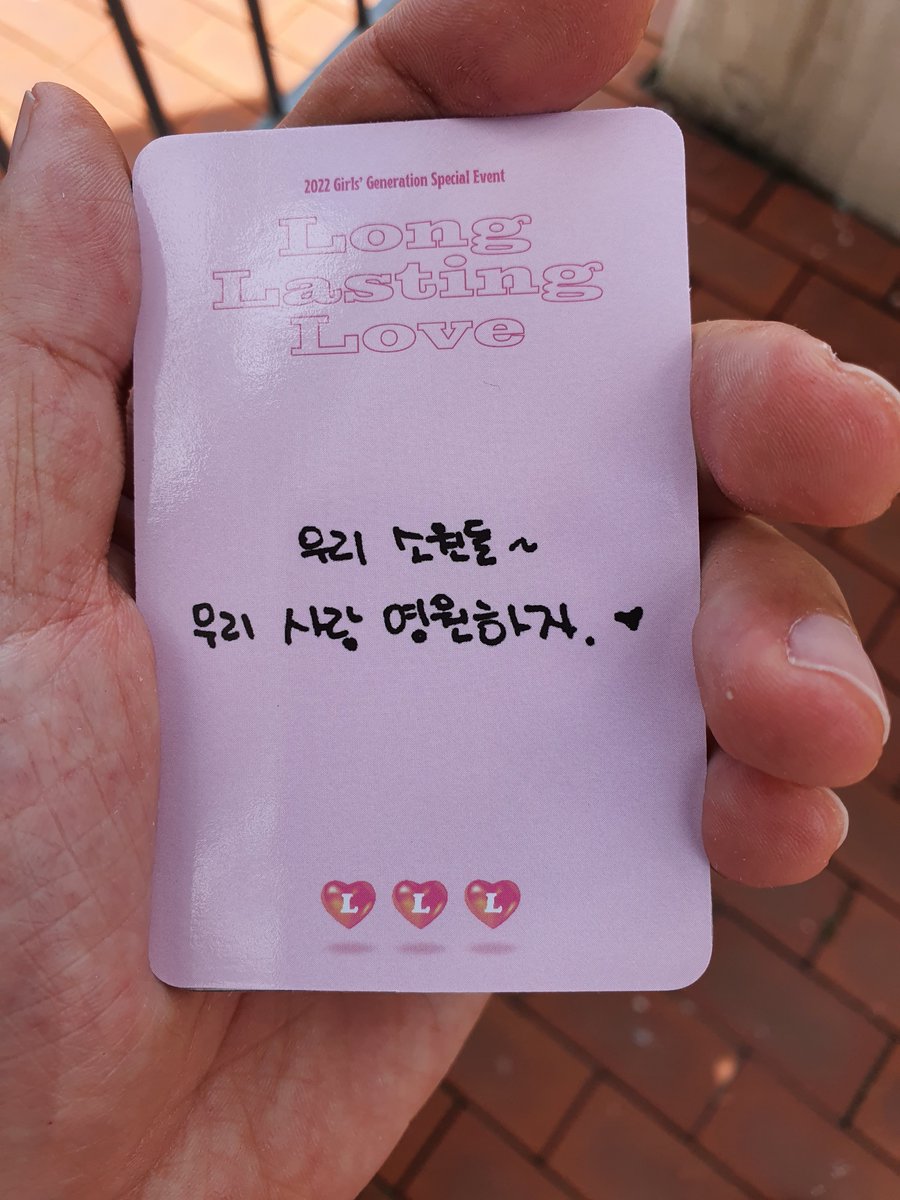 2022 Girls' Generation Special Event
Long
Lasting
Love
우리 소원들~
우리 사랑 영원하자. ♥
L L L